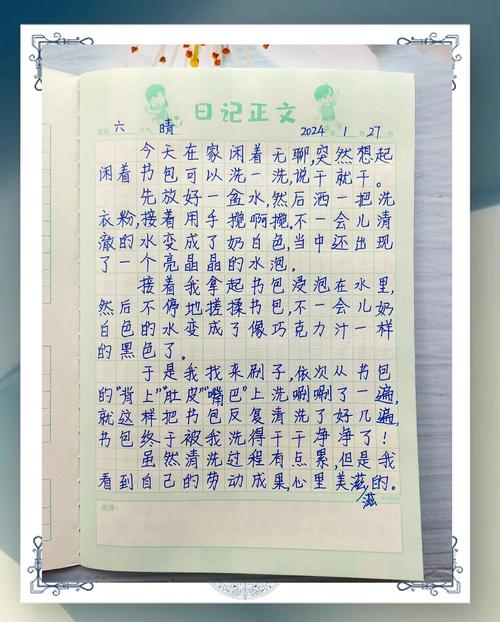 日记正文
星期 六 天气 晴 2024 年 1 月 27 日
今天在家闲着无聊,突然想起
闲着书包可以洗一洗,说干就干。
先放好一盆水,然后洒一把洗
衣粉,接着用手搅啊搅,不一会儿清
澈的水变成了奶白色,当中还出现
了一个亮晶晶的水泡。
接着我拿起书包浸泡在水里,
然后不停地搓揉书包,不一会儿奶
白色的水变成了像巧克力汁一样
的黑色了。
于是我找来刷子,依次从书包
的"背上""肚皮""嘴巴"上洗唰唰了一遍,
就这样把书包反复清洗了好几遍,
书包终于被我洗得干干净净了!
虽然清洗过程有点累,但是我
看到自己的劳动成果,心里美滋的。
滋
点评: